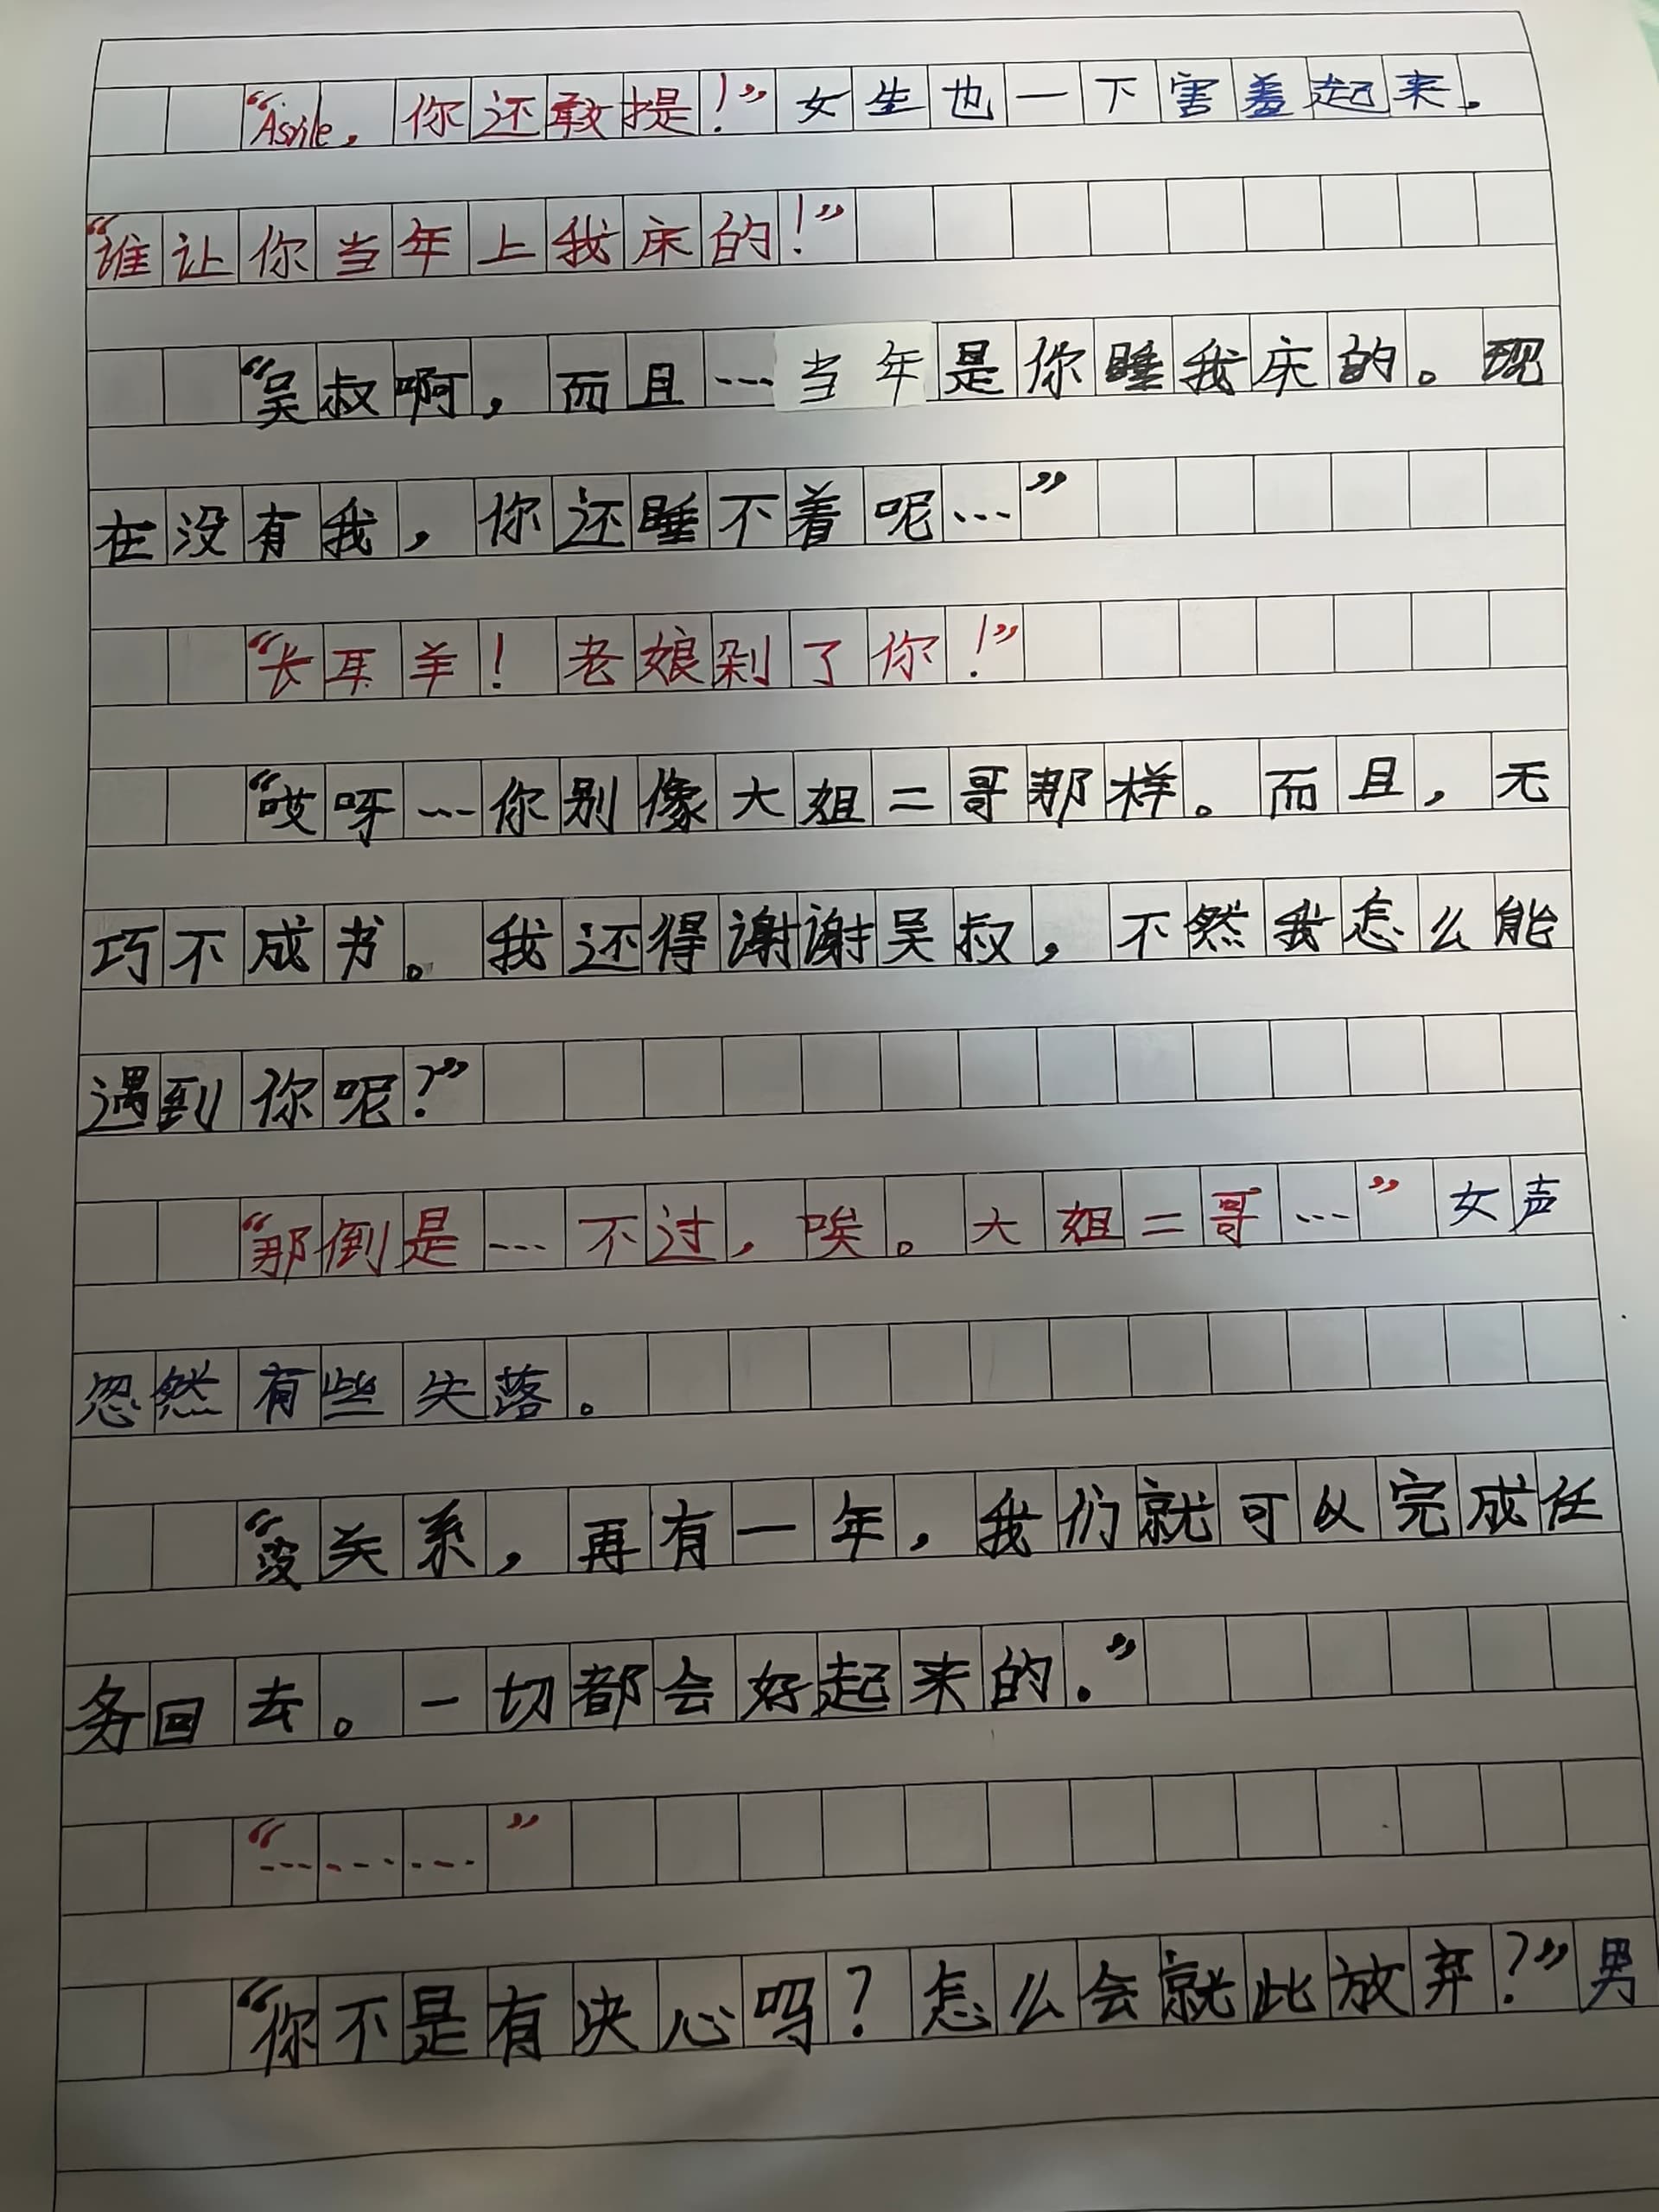 “Asrile，你还敢提！”女生也一下害羞起来。
“谁让你当年上我床的！”
“吴叔啊，而且…当年是你睡我床的。现
在没有我，你还睡不着呢…”
“长耳羊！老娘剁了你！”
“哎呀…你别像大姐二哥那样。而且，无
巧不成书。我还得谢谢吴叔，不然我怎么能
遇到你呢？”
“那倒是…不过，唉。大姐二哥…”女声
忽然有些失落。
“没关系，再有一年，我们就可以完成任
务回去。一切都会好起来的。”
“………”
“你不是有决心吗？怎么会就此放弃？”男